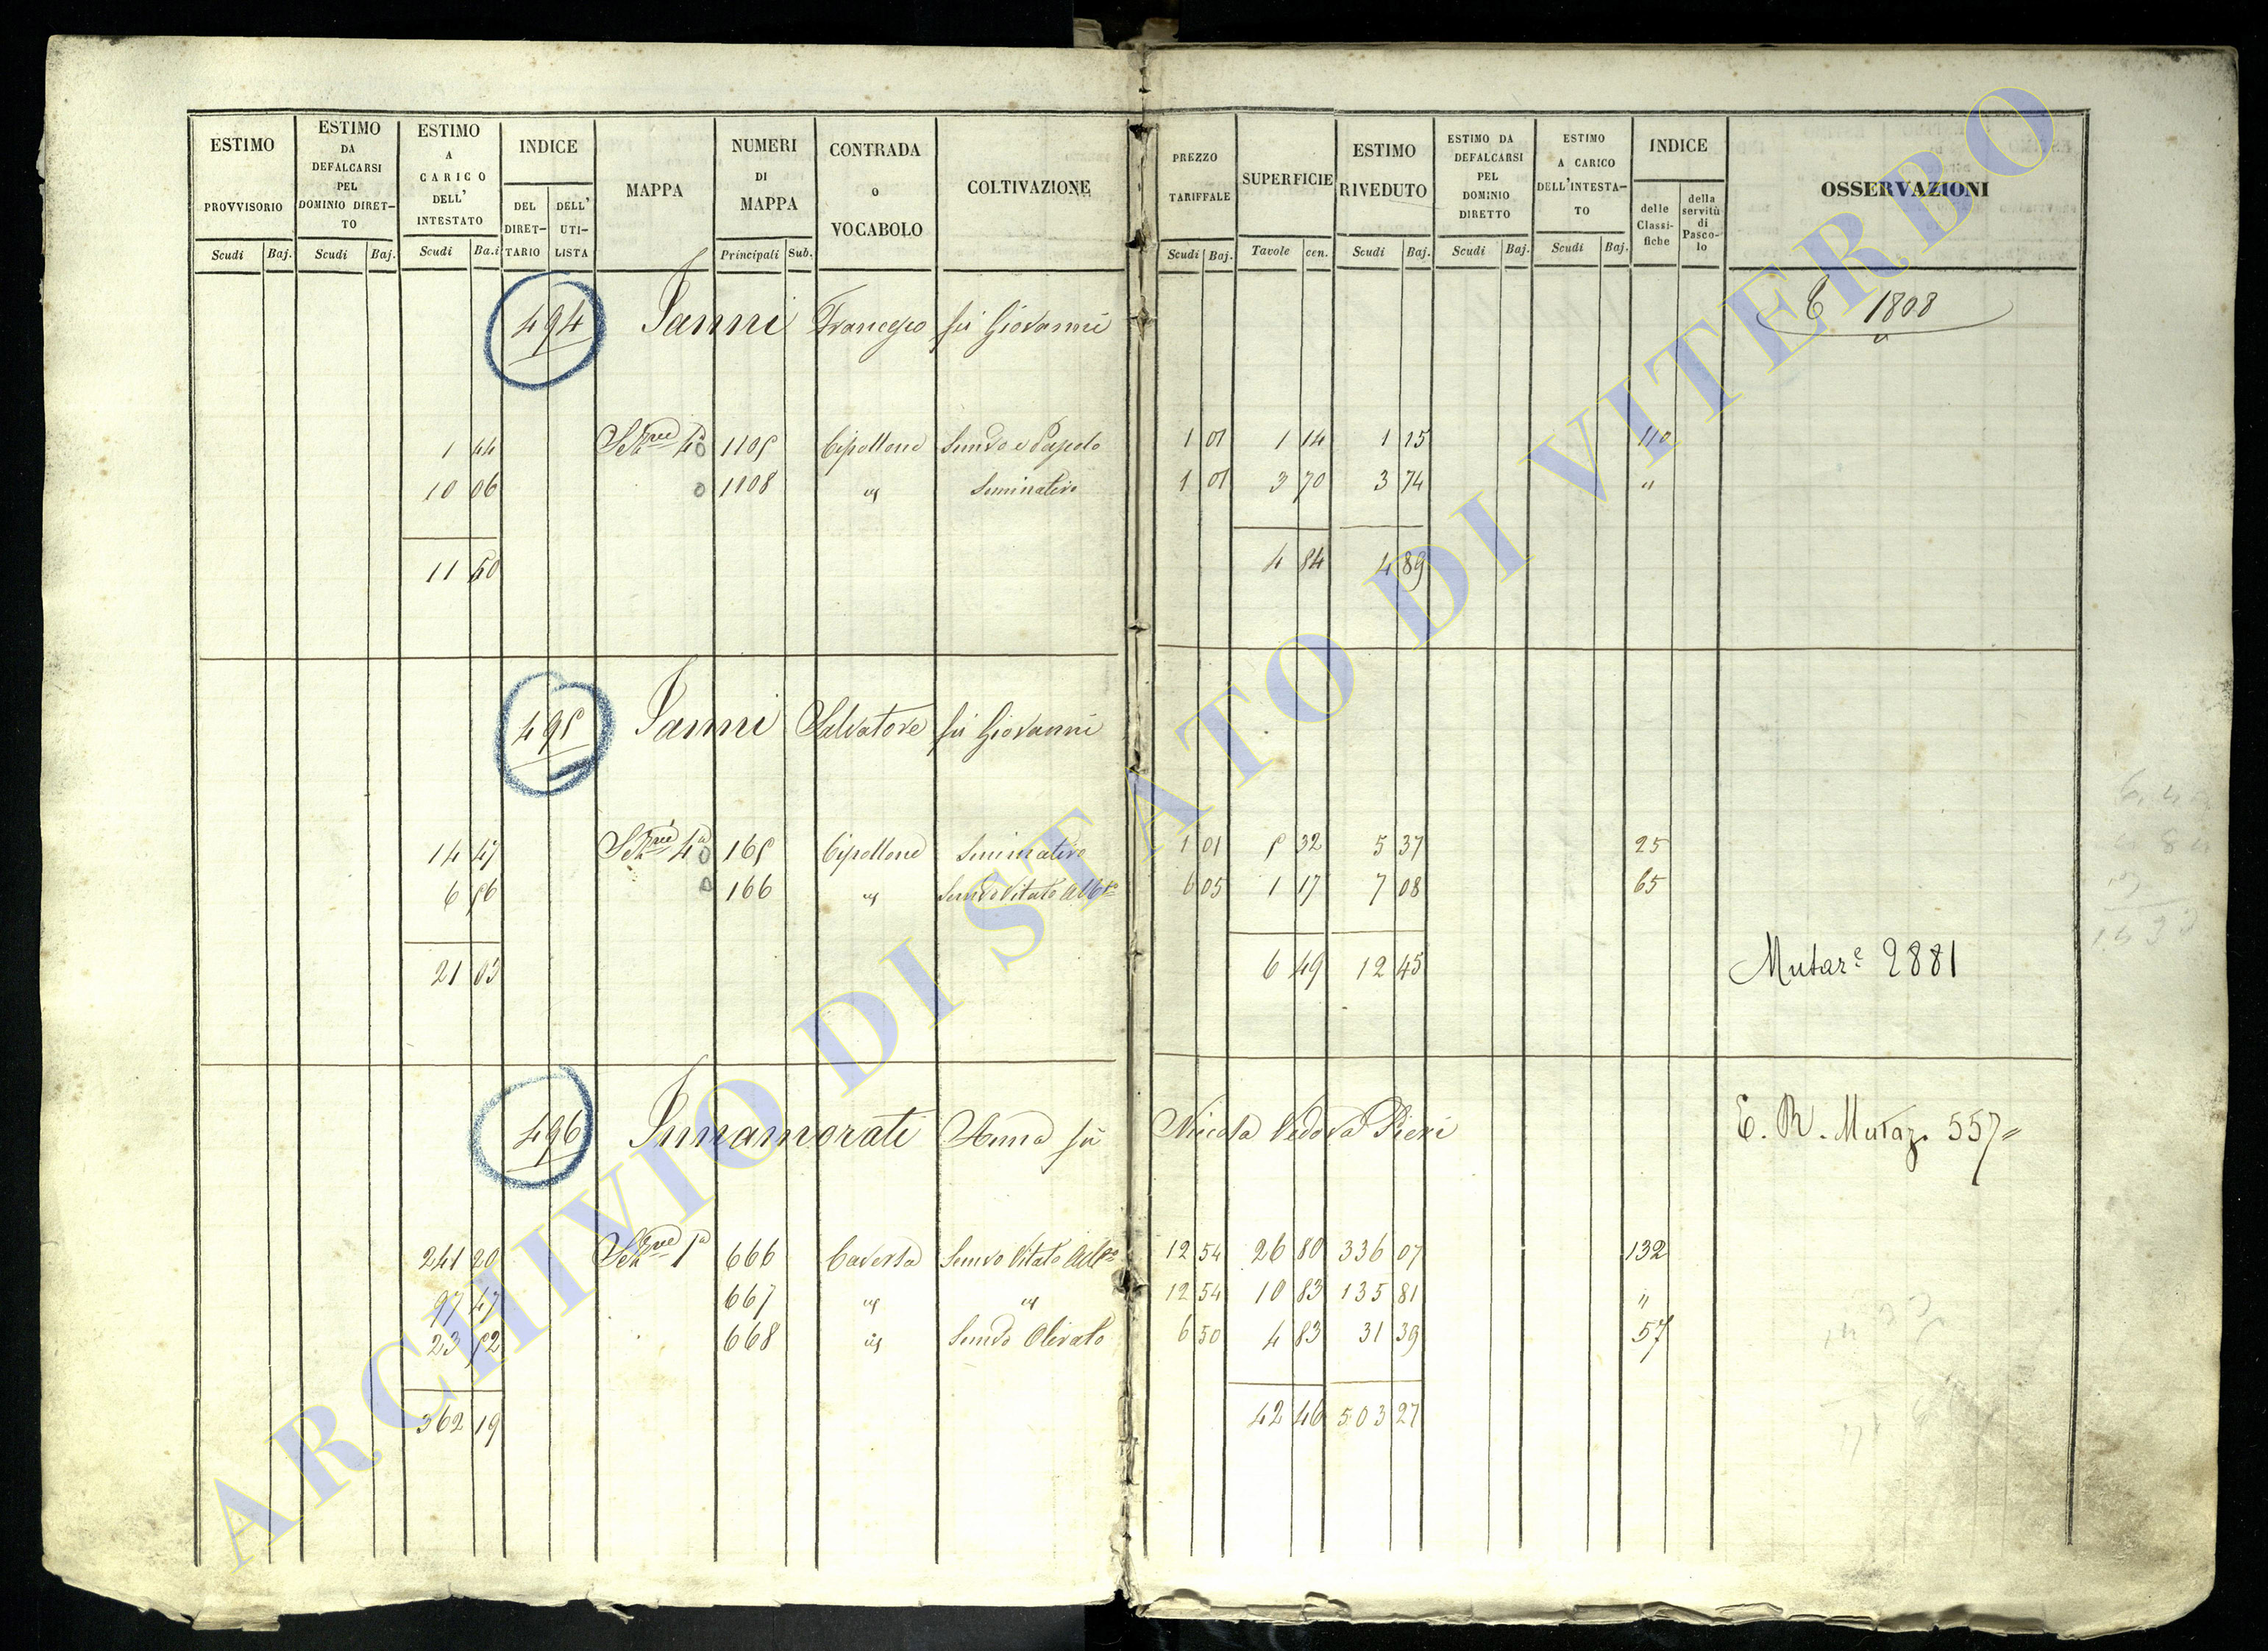 ESTIMO PROVVISORIO
ESTIMO DA DEFALCARSI PEL DOMINIO DIRET-TO
ESTIMO A CARICO DELL' INTESTATO
INDICE
DEL DIRET-TARIO
DELL' UTI-LISTA
MAPPA
NUMERI DI MAPPA
CONTRADA o VOCABOLO
COLTIVAZIONE
PREZZO TARIFFALE
SUPERFICIE
ESTIMO RIVEDUTO
ESTIMO DA DEFALCARSI PEL DOMINIO DIRETTO
ESTIMO A CARICO DELL'INTESTA-TO
INDICE
delle Classi-fiche
della servitù di Pasco-lo
OSSERVAZIONI
Scudi Baj. Scudi Baj. Scudi Ba.i Principali Sub. Scudi Baj. Tavole cen. Scudi Baj. Scudi Baj. Scudi Baj.
494 Ianni Francesco fu Giovanni 1808
1 44 Sezne 4a 1105 Cipollone 1 01 1 14 1 15 110
10 06 1108 " Seminativo 1 01 3 70 3 74 "
11 50 4 84 4 89
495 Ianni Salvatore fu Giovanni
14 47 Sezne 4a 165 Cipollone Seminativo 1 01 5 32 5 37 25
6 56 166 " Semvo Vitato Albto 6 05 1 17 7 08 65
21 03 6 49 12 45 Mutare 2881
496 Innamorati Anna fu Nicola Vedova Pieri E. R. Mutaz. 557
241 20 Sezne 1a 666 Caversa Semvo Vitato Albto 12 54 26 80 336 07 132
97 47 667 " " 12 54 10 83 135 81 "
23 52 668 " Semvo Olivato 6 50 4 83 31 39 57
362 19 42 46 503 27
ARCHIVIO DI STATO DI VITERBO